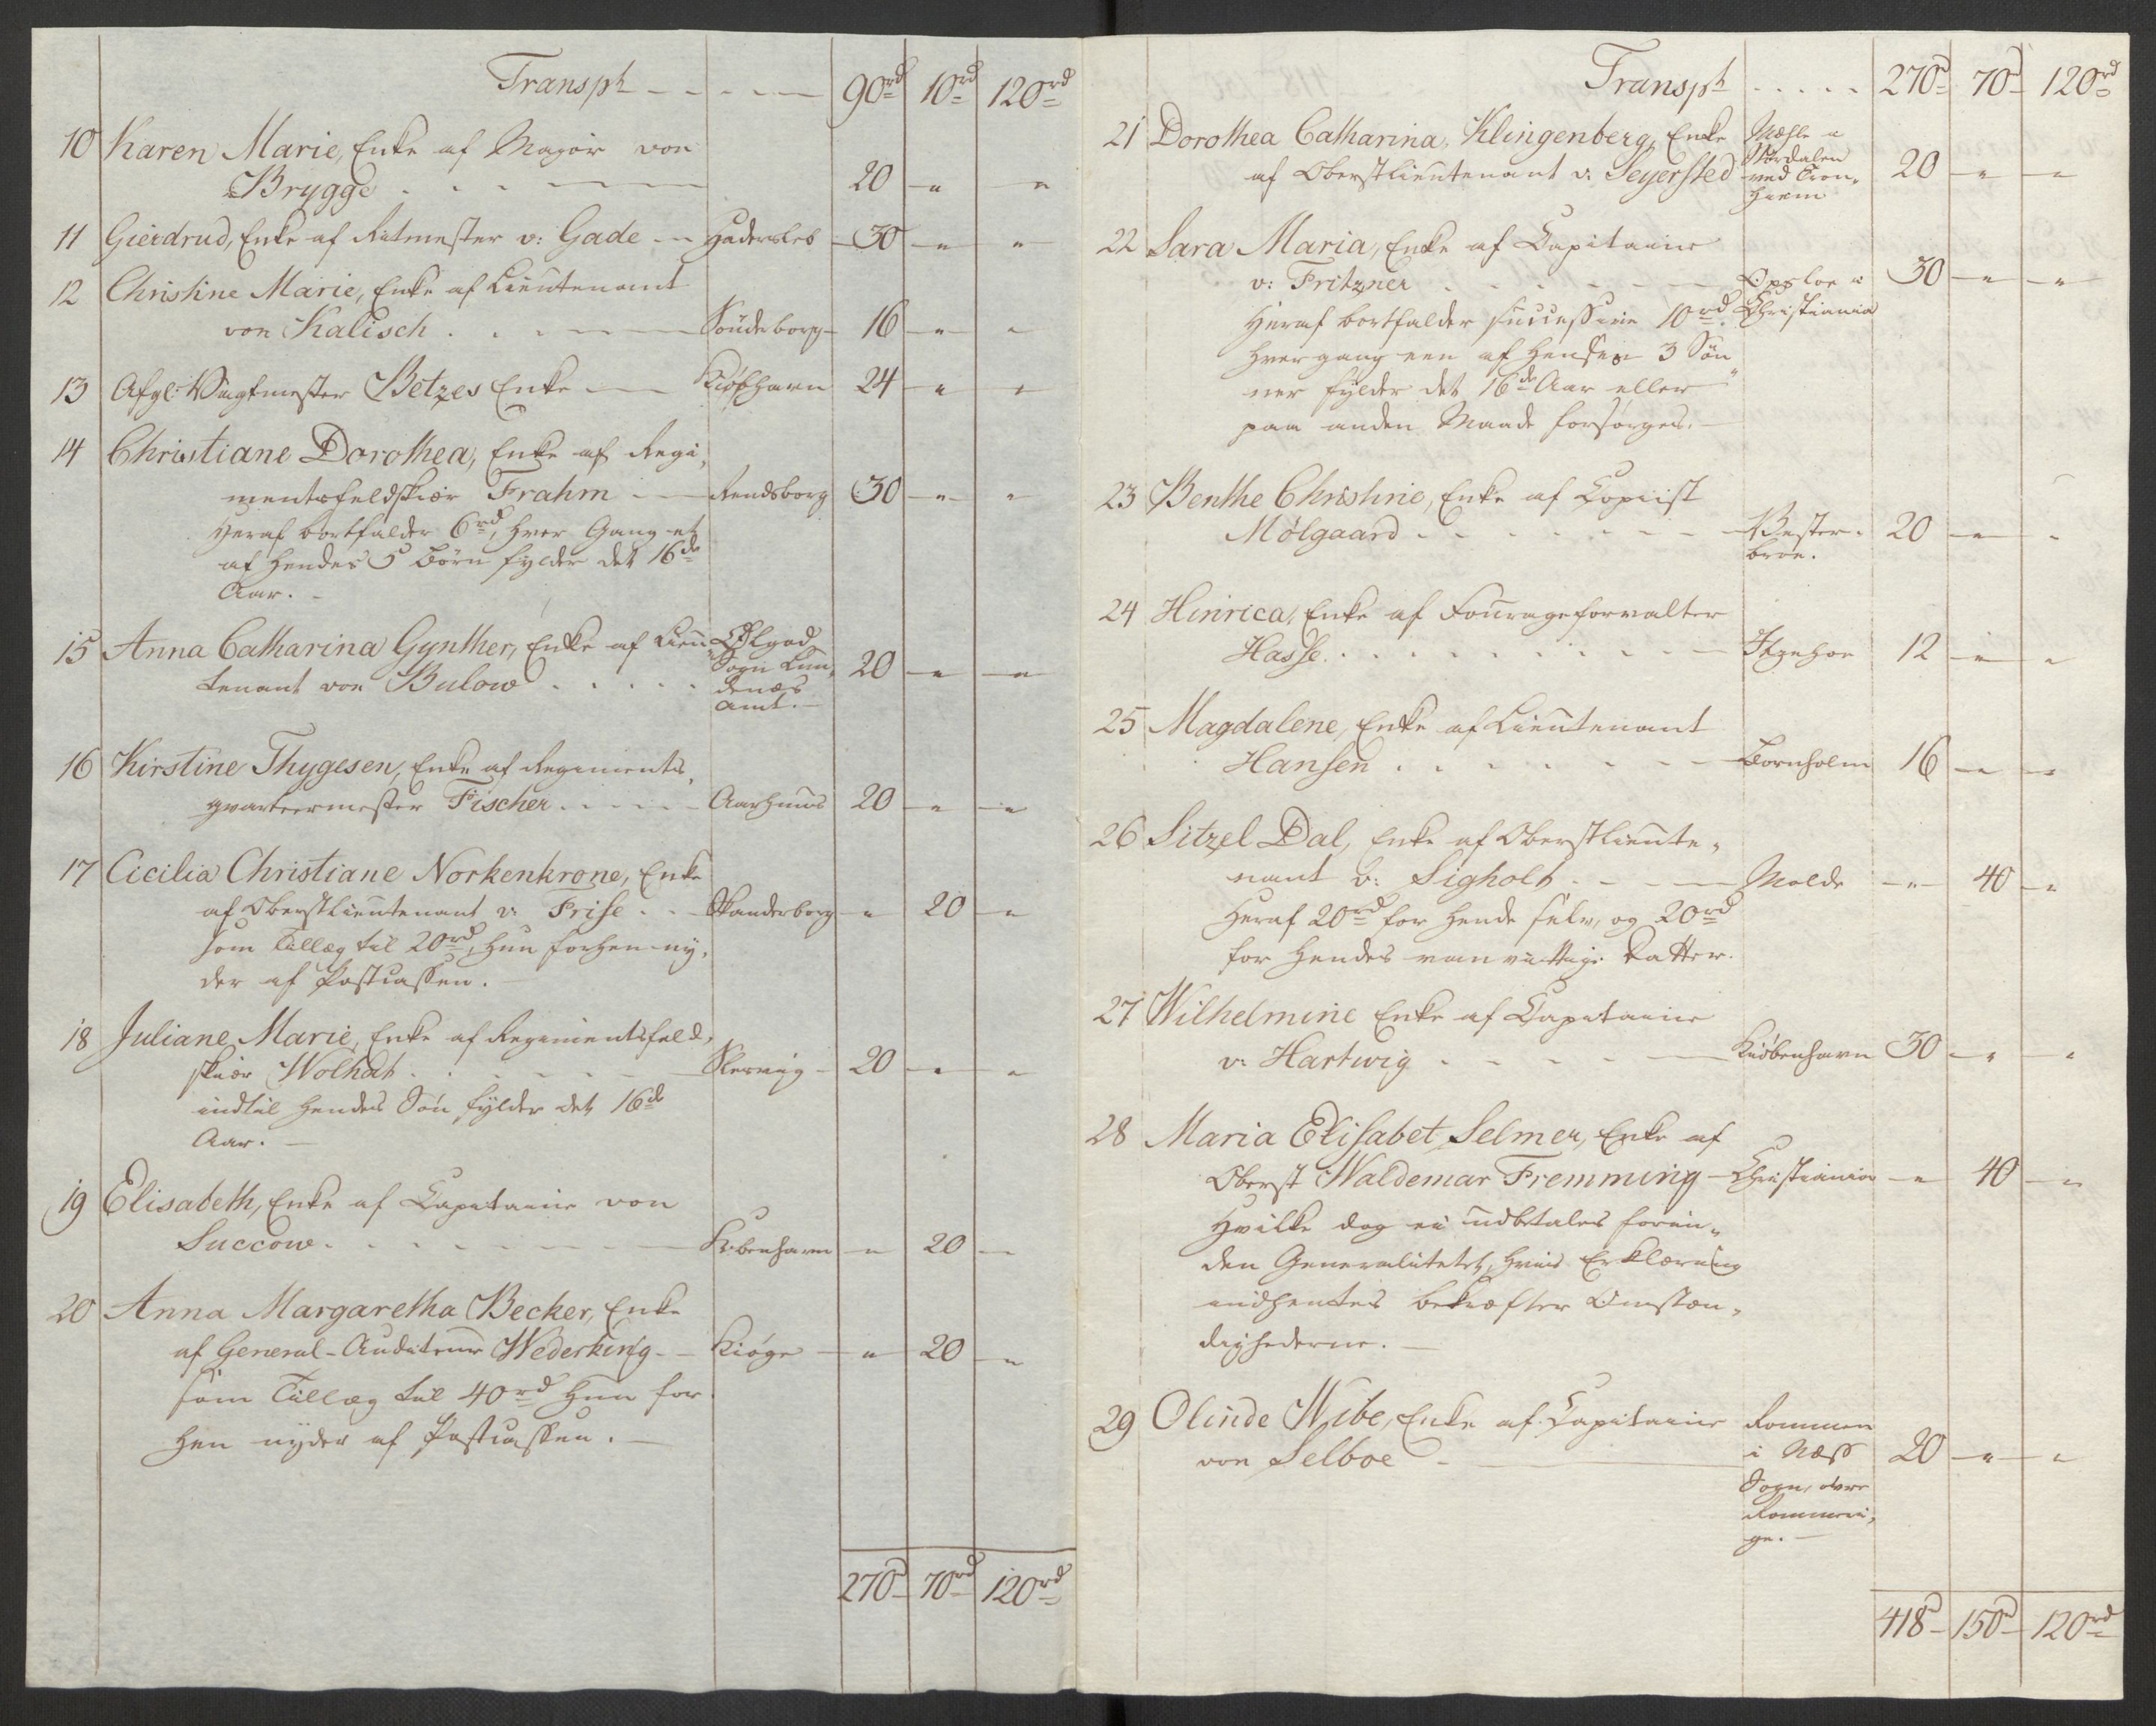 Transpt - - - - 90rd 10rd 120rd
10 Karen Marie, Enke af Major von
Brygge . . . 20 - " - "
11 Gierdrud, Enke af Ritmester v: Gade - - Hadersleb - 30 - " - "
12 Christine Marie, Enke af Lieutenant
von Kalisch . . . Sönderborg - 16 - " - "
13 Afgl: Vagtmester Betzes Enke - Kiøbhavn 24 - " - "
14 Christiane Dorothea, Enke af Regi,
mentsfeldskiær Frahm - Rendsborg 30 - " - "
Heraf bortfalder 6rd, hver Gang et
af hendes 5 Börn fylder det 16de
Aar. -
15 Anna Catharina Gynther, Enke af Lieu„ Ølgod
tenant von Bulow . . . . . Sogn Lun, 20 - " - "
denæs
Amt. -
16 Kirstine Thygesen, Enke af Regiments,
qvarteermester Fischer . . . - Aarhuus 20 - " - "
17 Cicilia Christiane Norkenkrone, Enke
af Oberstlieutenant v: Frise . . - Skanderborg - " 20 - "
som Tillæg til 20rd, hun forhen ny,
der af Postcassen. -
18 Juliane Marie, Enke af Regimentsfeld,
skiær Wolhat . . . Slesvig - 20 - " - "
indtil hendes Søn fylder det 16de
Aar. -
19 Elisabeth, Enke af Capitaine von
Succow . . . Kiöbenhavn - " 20 - "
20 Anna Margaretha Becker, Enke
af General-Auditeur Wederking - - Kiøge - " 20 - "
som Tillæg til 40rd hun for
hen nyder af Postcassen. -
270rd 70rd 120rd
Transpt . . . . . 270rd 70rd 120rd
21 Dorothea Catharina Klingenberg, Enke Mæhle i
af Oberstlieutenant v: Seyersted Værdalen 20 - " - "
ved Tron„
hiem
22 Sara Maria, Enke af Capitaine
v: Fritzner . . . Opsloe i 30 - " - "
Heraf bortfalder successive 10rd Christiania
hver gang een af hendes 3 Søn
ner fylder det 16de Aar eller
paa anden Maade forsörges. -
23 Benthe Christine, Enke af Copiist
Mølgaard . . . Vester- 20 - " - "
broe.
24 Hinrica, Enke af Fourageforvalter
Hasse . . . Itzehoe 12 - " - "
25 Magdalene, Enke af Lieutenant
Hansen . . . Bornholm 16 - " - "
26 Sitzel Dal, Enke af Oberstlieute„
nant v: Sigholt . . - Molde - " - 40 - "
Heraf 20rd for hende selv, og 20rd
for hendes vanvittige Datter.
27 Wilhelmine Enke af Capitaine
v: Hartwig . . . Kiöbenhavn 30 - " - "
28 Maria Elisabet Selmer, Enke af
Oberst Waldemar Fremming - Christiania - " 40 - "
Hvilke dog ei udbetales forin„
den Generalitetet, hvis Erklæring
indhentes bekræfter Omstæn„
dighederne. -
29 Olinde Wibe, Enke af Capitaine Rommen
von Selboe - i Næss 20 - " - "
Sogn, øvre
Rommeri„
ge. -
418rd 150rd 120rd